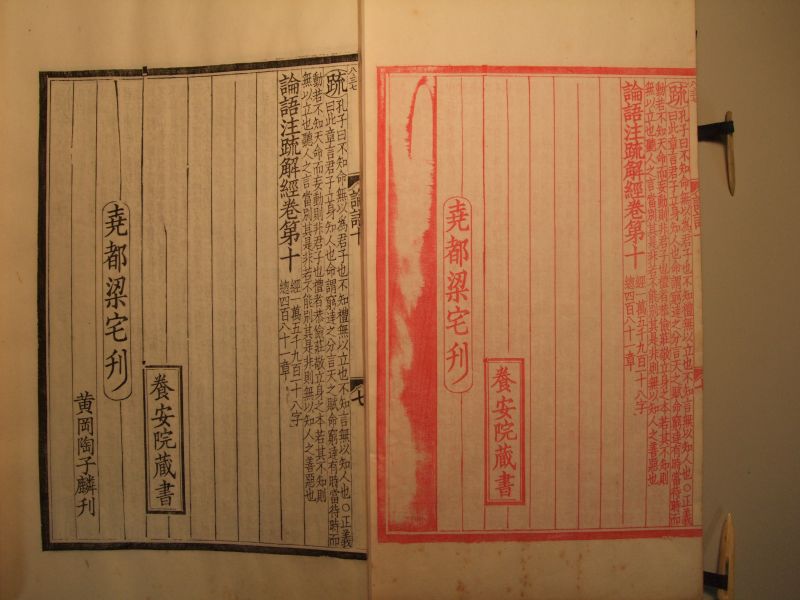 八三七
疏 孔子曰不知命無以為君子也不知禮無以立也不知言無以知人也○正義
曰此章言君子立身知人也命謂窮達之分言天之賦命窮達有時當待時而
動若不知天命而妄動則非君子也禮者恭儉莊敬立身之本若其不知則
無以立也聽人之言當別其是非若不能別其是非則無以知人之善惡也
論語注疏解經卷第十
經一萬五千九百二十八字
總四百八十一章
養安院藏書
堯都梁宅刊
八三七
論語十
七
疏 孔子曰不知命無以為君子也不知禮無以立也不知言無以知人也○正義
曰此章言君子立身知人也命謂窮達之分言天之賦命窮達有時當待時而
動若不知天命而妄動則非君子也禮者恭儉莊敬立身之本若其不知則
無以立也聽人之言當別其是非若不能別其是非則無以知人之善惡也
論語注疏解經卷第十
經一萬五千九百二十八字
總四百八十一章
養安院藏書
堯都梁宅刊
黃岡陶子麟刊